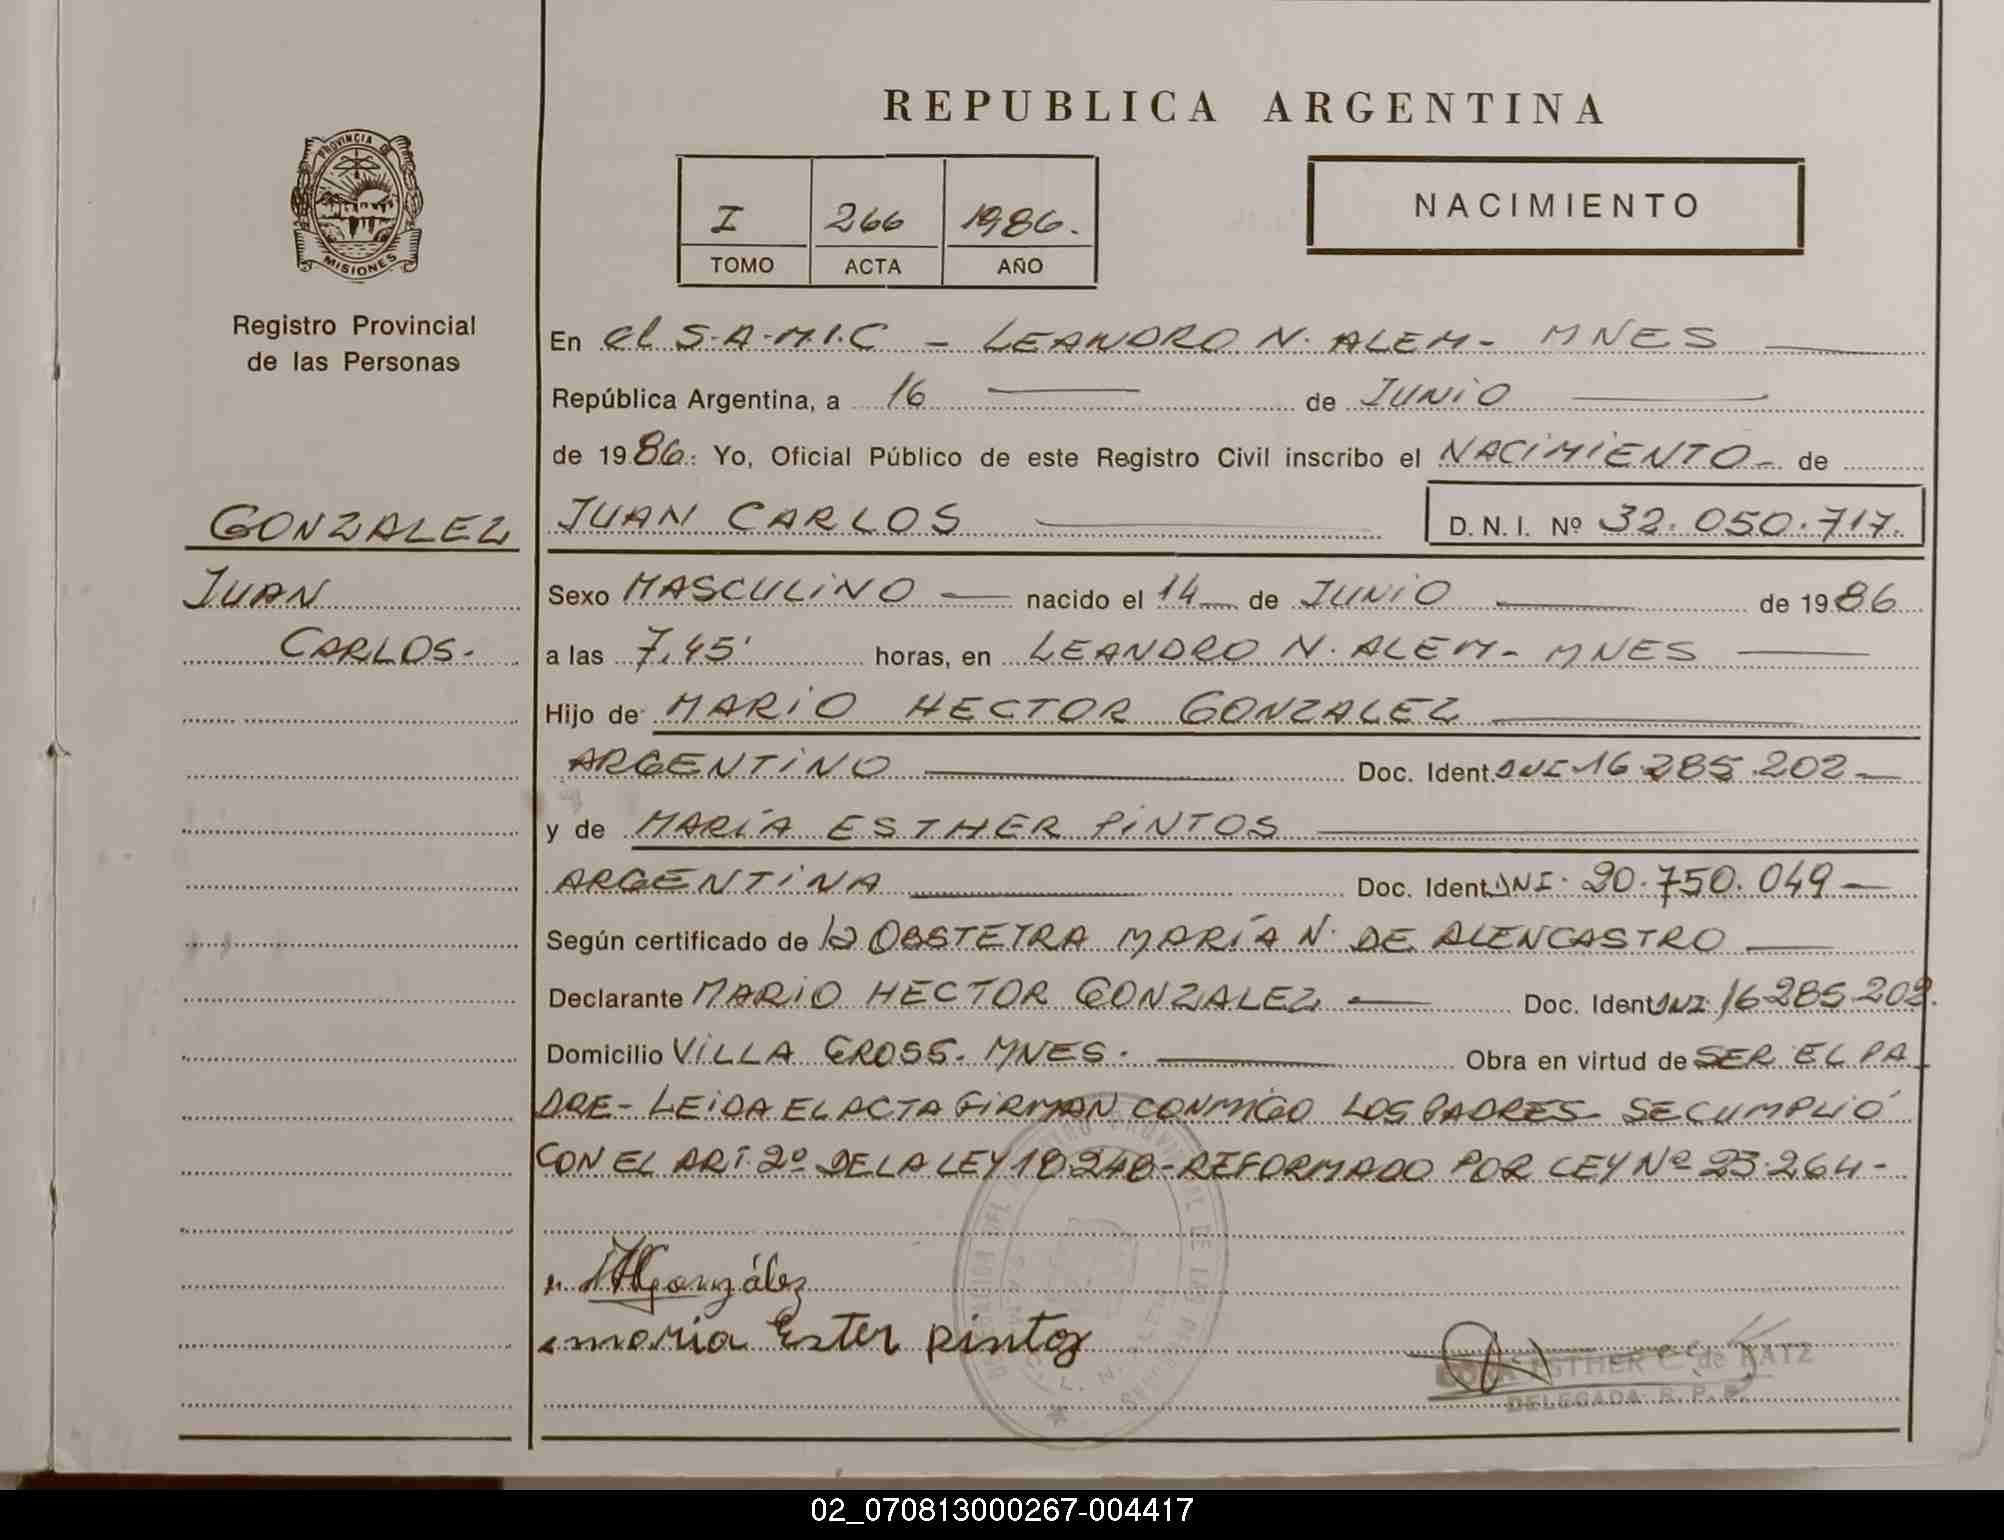 REPUBLICA ARGENTINA
PROVINCIA DE
MISIONES
Registro Provincial
de las Personas
I 266 1986.
TOMO ACTA AÑO
NACIMIENTO
En el S.A.M.I.C - LEANDRO N. ALEM - MNES
República Argentina, a 16 de JUNIO
de 1986. Yo, Oficial Público de este Registro Civil inscribo el NACIMIENTO - de
GONZALEZ
JUAN CARLOS D.N.I. Nº 32.050.717.
JUAN
Sexo MASCULINO nacido el 14 de JUNIO de 1986
CARLOS.
a las 7,45' horas, en LEANDRO N. ALEM - MNES
Hijo de MARIO HECTOR GONZALEZ
ARGENTINO Doc. Ident. DNI 16.285.202 -
y de MARÍA ESTHER PINTOS
ARGENTINA Doc. Ident. DNI. 20.750.049 -
Según certificado de la OBSTETRA MARÍA N. DE ALENCASTRO
Declarante MARIO HECTOR GONZALEZ Doc. Ident. DNI. 16.285.202.
Domicilio VILLA GROSS. MNES. Obra en virtud de SER EL PA
DRE - LEIDA EL ACTA FIRMAN CONMIGO LOS PADRES. SE CUMPLIÓ
CON EL ART. 2º DE LA LEY 18.248 - REFORMADO POR LEY Nº 23.264 -
González
maria Ester pintos
ESTHER C. de KATZ
DELEGADA R. P. P.
02_070813000267-004417